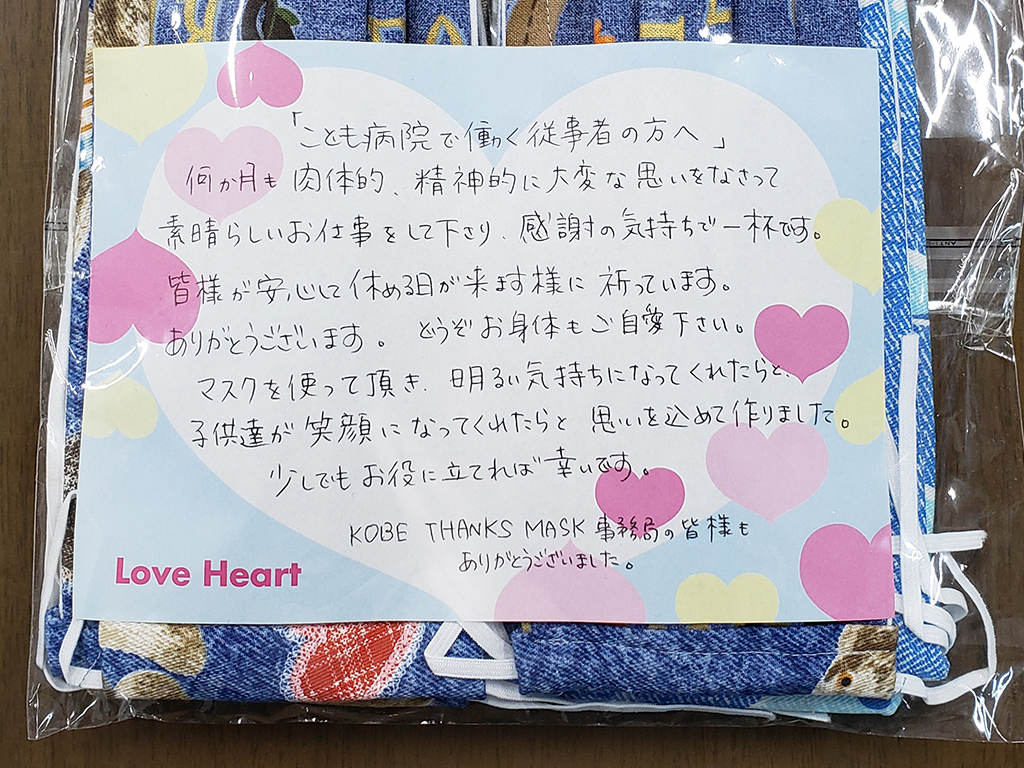 「こども病院で働く従事者の方へ」
何か月も肉体的、精神的に大変な思いをなさって
素晴らしいお仕事をして下さり、感謝の気持ちで一杯です。
皆様が安心して休める日が来ます様に祈っています。
ありがとうございます。どうぞお身体もご自愛下さい。
マスクを使って頂き、明るい気持ちになってくれたらと、
子供達が笑顔になってくれたらと思いを込めて作りました。
少しでもお役に立てれば幸いです。
KOBE THANKS MASK 事務局の皆様も
ありがとうございました。
Love Heart